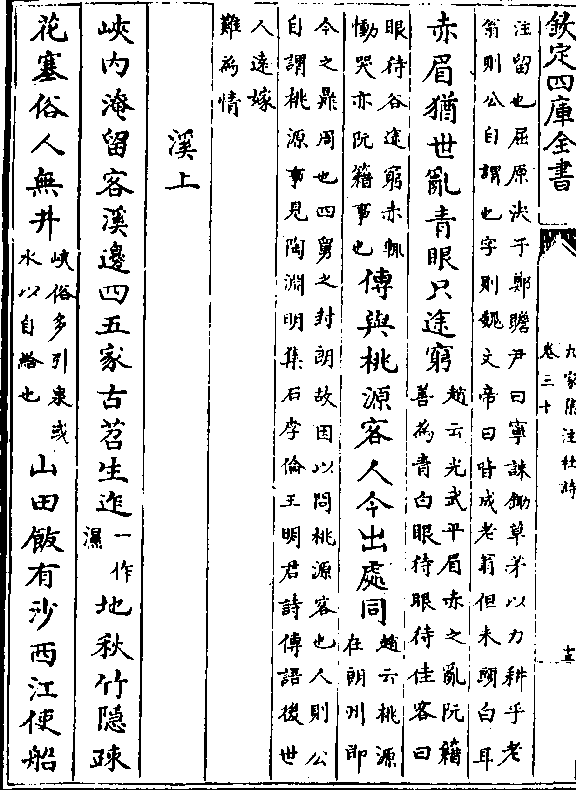 欽定四庫全書
九家集注杜詩
卷三十
注留也屈原決于鄭瞻尹曰寧誅鋤草茅以力耕乎老
翁則公自謂也字則魏文帝曰皆成老翁但未頭白耳
赤眉猶世亂青眼只途窮
趙云光武平眉赤之亂阮籍
善為青白眼待眼待佳客曰
眼待谷途窮赤輒
慟哭亦阮籍事也
傳與桃源客人今出處同
趙云桃源
在朝州即
今之鼎周也四舅之封朗故因以問桃源客也人則公
自謂桃源事見陶淵明集石李倫王明君詩傳語後世
人逺嫁
難為情
溪上
峽内淹留客溪邊四五家古苔生迮
一作
濕
地秋竹隱疎
花塞俗人無井
峽俗多引泉或
水以自給也
山田飯有沙西江使船